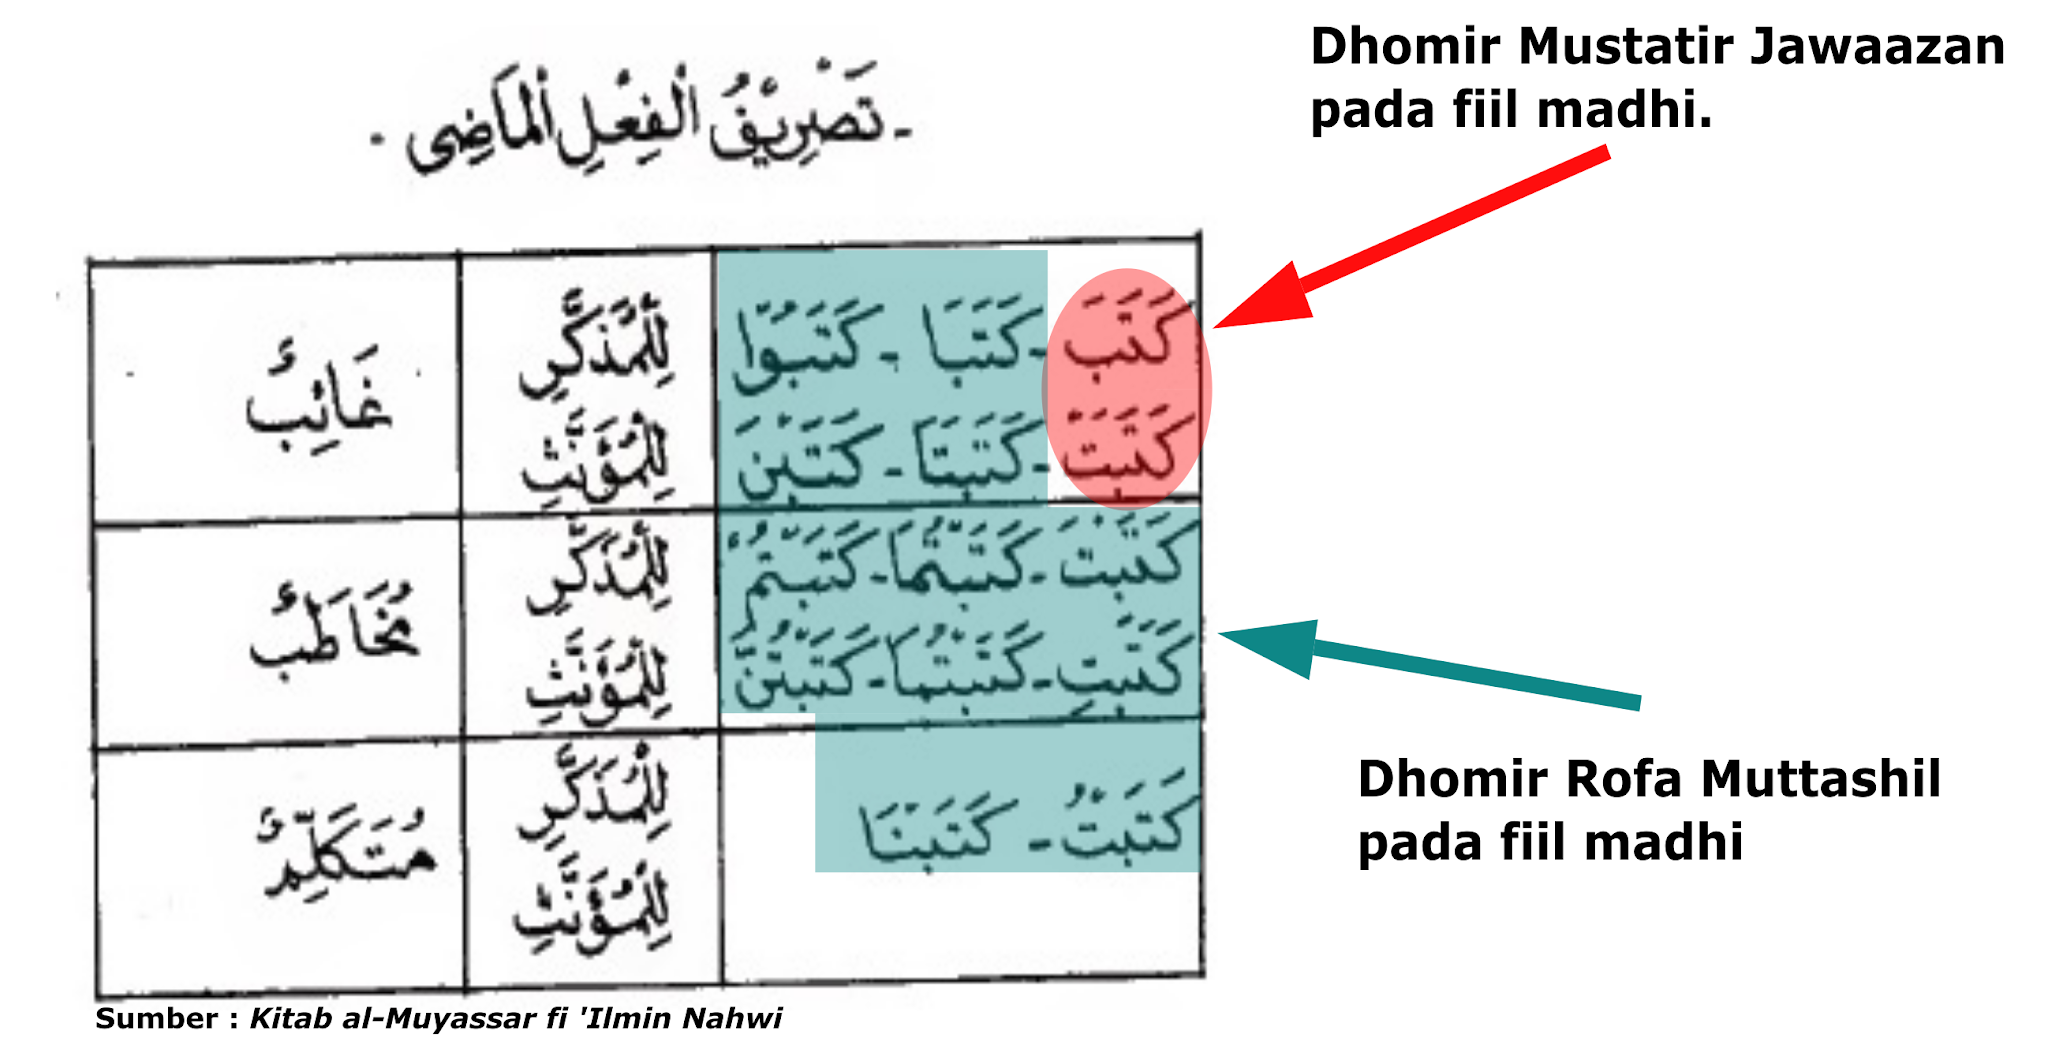 Dhomir Mustatir Jawaazan
pada fiil madhi.
- تَصْرِيْفُ الْفِعْلِ الْمَاضِى -
كَتَبَ - كَتَبَا - كَتَبُوْا
لِلْمُذَكَّرِ
غَائِبٌ
كَتَبَتْ - كَتَبَتَا - كَتَبْنَ
لِلْمُؤَنَّثِ
كَتَبْتَ - كَتَبْتُمَا - كَتَبْتُمْ
لِلْمُذَكَّرِ
مُخَاطَبٌ
كَتَبْتِ - كَتَبْتُمَا - كَتَبْتُنَّ
لِلْمُؤَنَّثِ
كَتَبْتُ - كَتَبْنَا
لِلْمُذَكَّرِ
مُتَكَلِّمٌ
لِلْمُؤَنَّثِ
Dhomir Rofa Muttashil
pada fiil madhi
Sumber : Kitab al-Muyassar fi 'Ilmin Nahwi